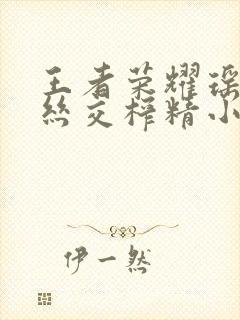 王者荣耀瑶
丝交榨精小
伊一然